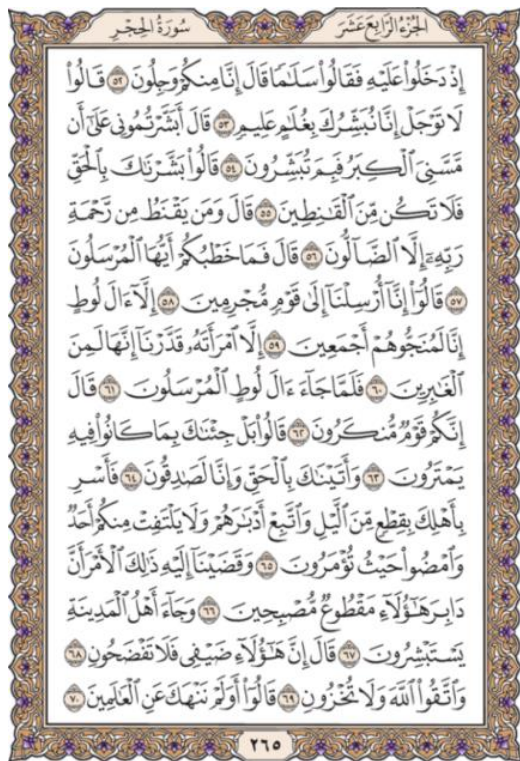 الجُزْءُ الرَّابِعَ عَشَرَ سُورَةُ الحِجْرِ
إِذْ دَخَلُواْ عَلَيْهِ فَقَالُواْ سَلَٰمًا قَالَ إِنَّا مِنكُمْ وَجِلُونَ ٥٢ قَالُواْ
لَا تَوْجَلْ إِنَّا نُبَشِّرُكَ بِغُلَٰمٍ عَلِيمٍ ٥٣ قَالَ أَبَشَّرْتُمُونِي عَلَىٰٓ أَن
مَّسَّنِيَ ٱلْكِبَرُ فَبِمَ تُبَشِّرُونَ ٥٤ قَالُواْ بَشَّرْنَٰكَ بِٱلْحَقِّ
فَلَا تَكُن مِّنَ ٱلْقَٰنِطِينَ ٥٥ قَالَ وَمَن يَقْنَطُ مِن رَّحْمَةِ
رَبِّهِۦٓ إِلَّا ٱلضَّآلُّونَ ٥٦ قَالَ فَمَا خَطْبُكُمْ أَيُّهَا ٱلْمُرْسَلُونَ
٥٧ قَالُوٓاْ إِنَّآ أُرْسِلْنَآ إِلَىٰ قَوْمٍ مُّجْرِمِينَ ٥٨ إِلَّآ ءَالَ لُوطٍ
إِنَّا لَمُنَجُّوهُمْ أَجْمَعِينَ ٥٩ إِلَّا ٱمْرَأَتَهُۥ قَدَّرْنَآ إِنَّهَا لَمِنَ
ٱلْغَٰبِرِينَ ٦٠ فَلَمَّا جَآءَ ءَالَ لُوطٍ ٱلْمُرْسَلُونَ ٦١ قَالَ
إِنَّكُمْ قَوْمٌ مُّنكَرُونَ ٦٢ قَالُواْ بَلْ جِئْنَٰكَ بِمَا كَانُواْ فِيهِ
يَمْتَرُونَ ٦٣ وَأَتَيْنَٰكَ بِٱلْحَقِّ وَإِنَّا لَصَٰدِقُونَ ٦٤ فَأَسْرِ
بِأَهْلِكَ بِقِطْعٍ مِّنَ ٱلَّيْلِ وَٱتَّبِعْ أَدْبَٰرَهُمْ وَلَا يَلْتَفِتْ مِنكُمْ أَحَدٌ
وَٱمْضُواْ حَيْثُ تُؤْمَرُونَ ٦٥ وَقَضَيْنَآ إِلَيْهِ ذَٰلِكَ ٱلْأَمْرَ أَنَّ
دَابِرَ هَٰٓؤُلَآءِ مَقْطُوعٌ مُّصْبِحِينَ ٦٦ وَجَآءَ أَهْلُ ٱلْمَدِينَةِ
يَسْتَبْشِرُونَ ٦٧ قَالَ إِنَّ هَٰٓؤُلَآءِ ضَيْفِي فَلَا تَفْضَحُونِ ٦٨
وَٱتَّقُواْ ٱللَّهَ وَلَا تُخْزُونِ ٦٩ قَالُوٓاْ أَوَلَمْ نَنْهَكَ عَنِ ٱلْعَٰلَمِينَ ٧٠
٢٦٥